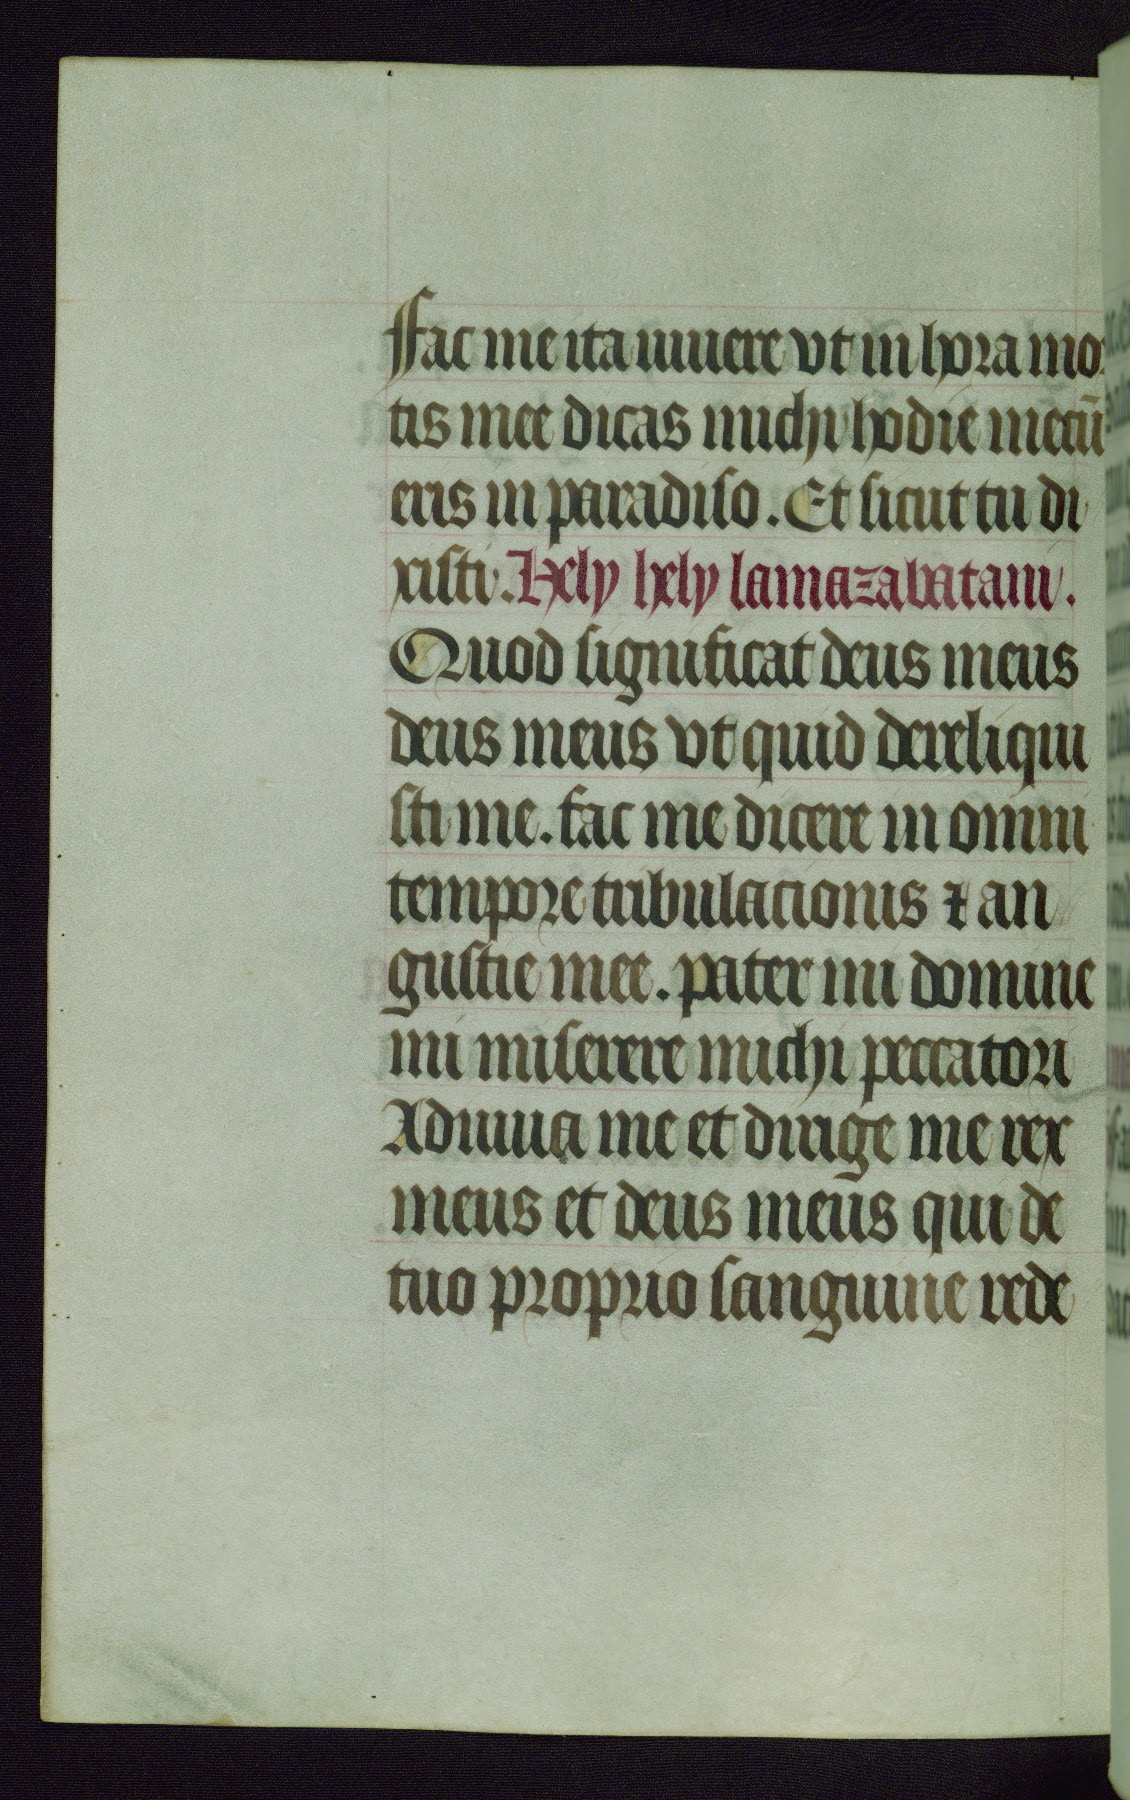 Fac me ita uiuere vt in hora mor
tis mee dicas michi hodie mecū
eris in paradiso. Et sicut tu di
xisti. Hely hely lamazabatani.
Quod significat deus meus
deus meus vt quid dereliqui
sti me. fac me dicere in omni
tempore tribulacionis ⁊ an
gustie mee. pater mi domine
mi miserere michi peccatori
Adiuua me et dirige me rex
meus et deus meus qui de
tuo proprio sanguine rede